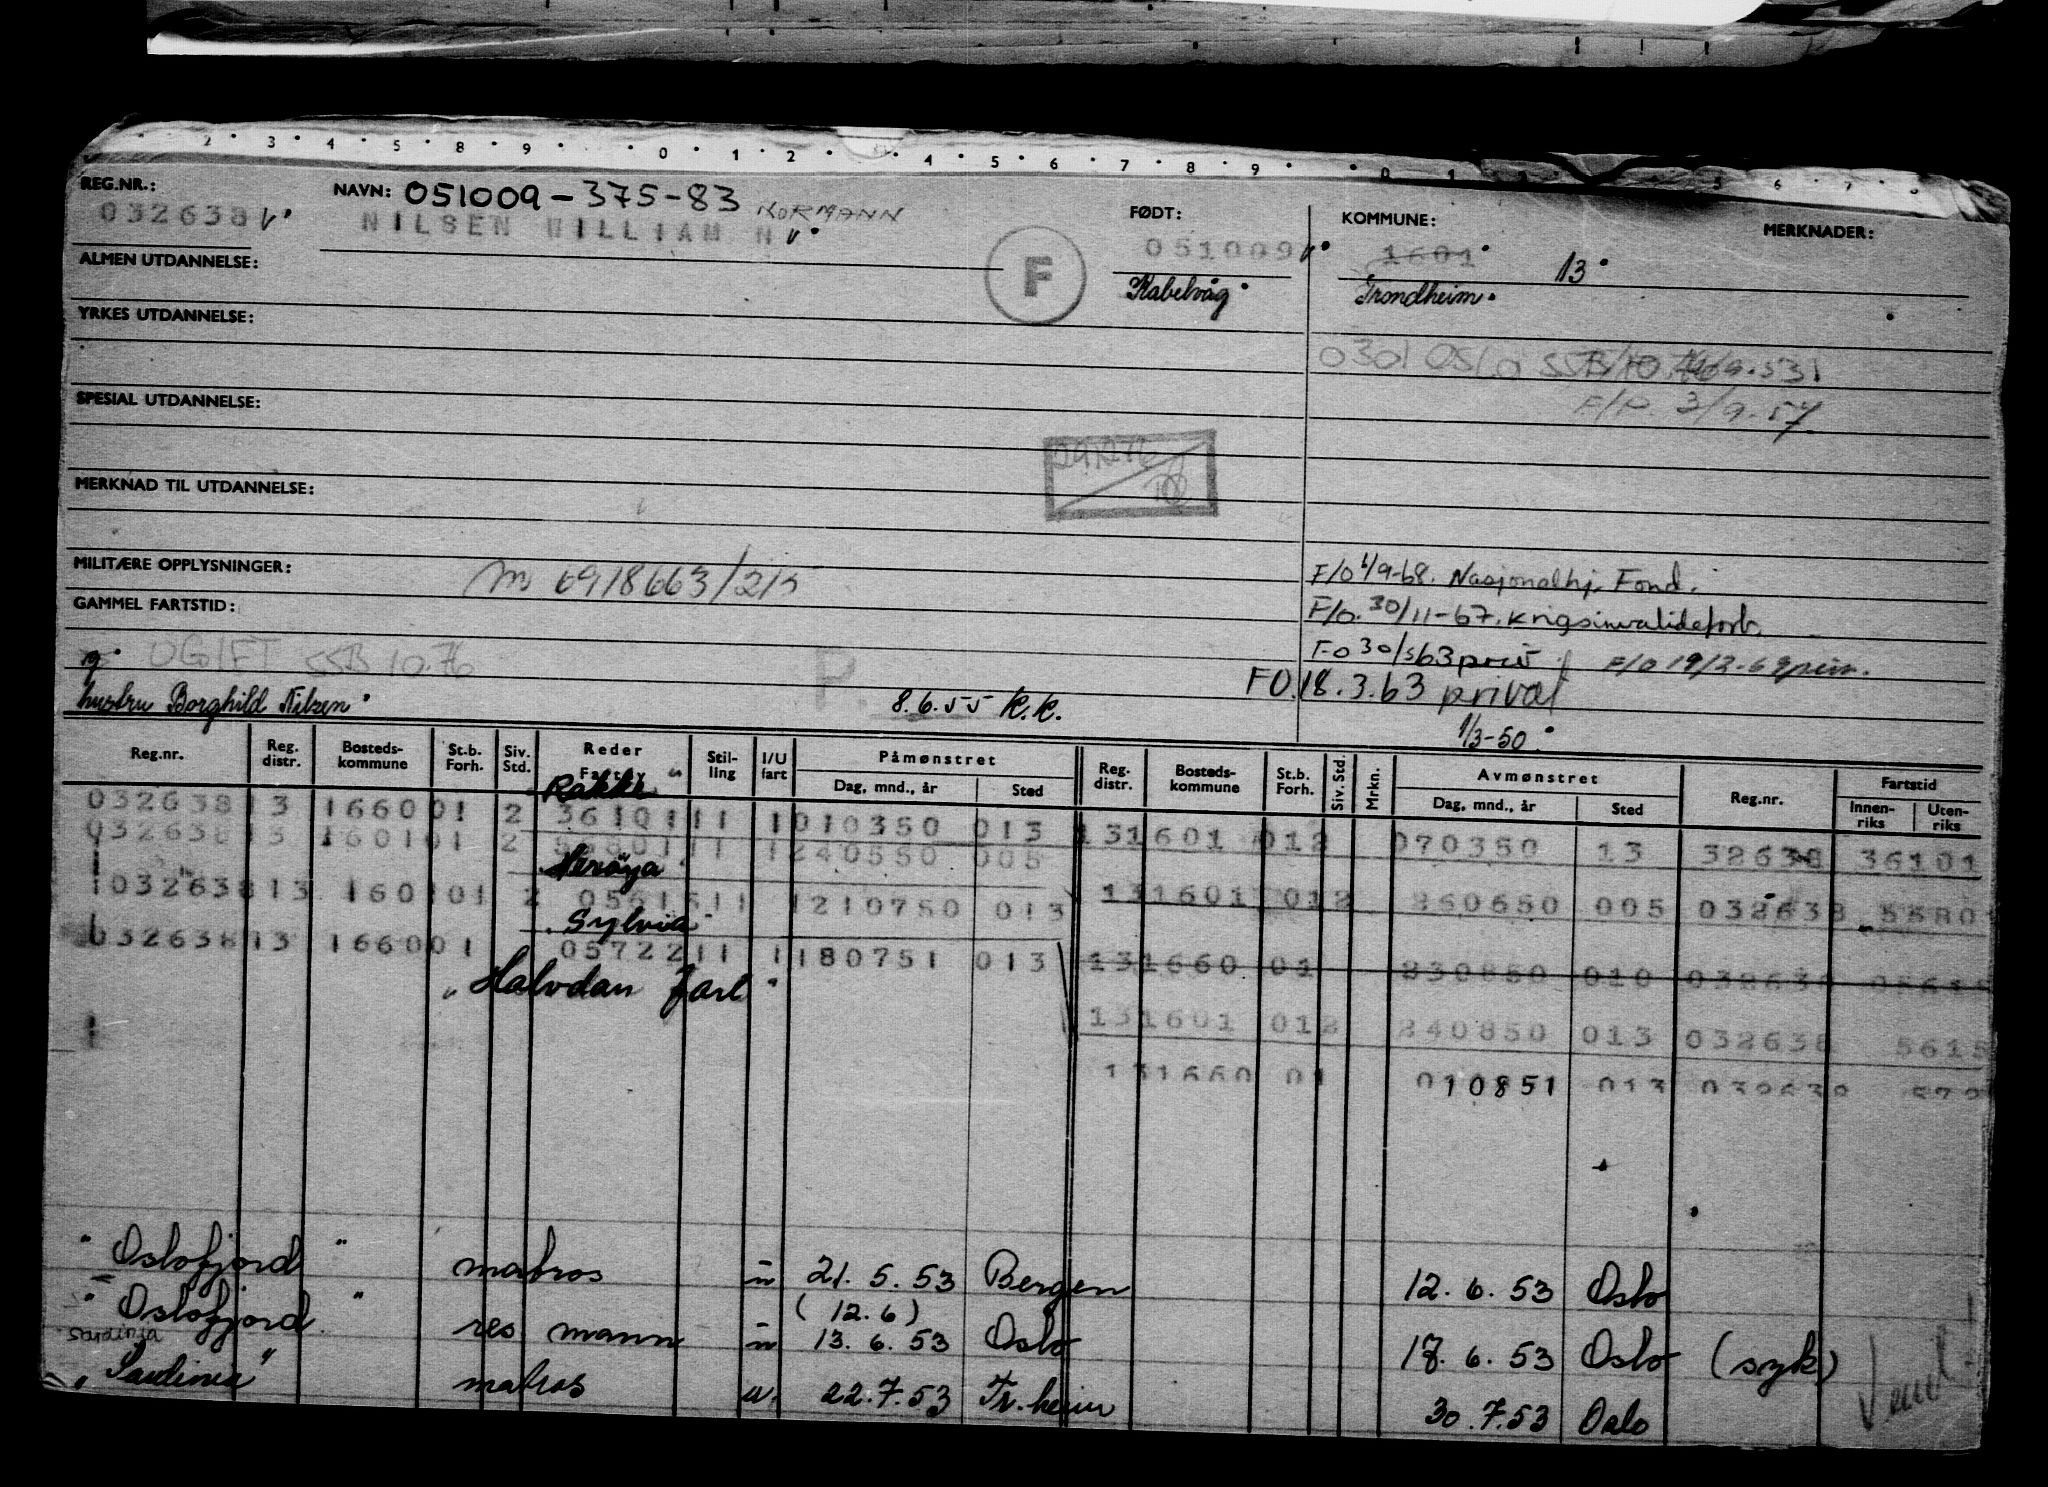 2 3 4 5 8 9 0 1 2 4 5 6 7 8 9 0 1 5 6 7
REG.NR.: NAVN: 051009-375-83 NORMANN FØDT: KOMMUNE: MERKNADER:
032638 NILSEN WILLIAM N 051009 1601 13
ALMEN UTDANNELSE: F Kabelvåg Trondheim
YRKES UTDANNELSE:
0301 OSLO SSB/10.76
SPESIAL UTDANNELSE: F/P. 3/9-57
MERKNAD TIL UTDANNELSE:
MILITÆRE OPPLYSNINGER: F/O 1/9-68. Nasjonalhj. Fond.
GAMMEL FARTSTID: F/O. 30/11-67. Krigsinvalideforb.
g UGIFT SSB 10.76 P. FO 30/563 priv F/O 19/2-69 priv.
hustru Borghild Nilsen 8.6.55 K.K. FO.18.3.63 privat
1/3-50
Reg.nr. Reg. distr. Bosteds-kommune St.b. Forh. Siv. Std. Reder Fartøy Stil-ling I/U fart Påmønstret Reg. distr. Bosteds-kommune St.b. Forh. Siv. Std. Mrkn. Avmønstret Reg.nr. Fartstid
Dag, mnd., år Sted Dag, mnd., år Sted Innen-riks Uten-riks
Rakke
032638 13 1660 01 2 36101 11 1 010350 013 13 1601 012 070350 13 32638 36101
032638 13 1601 01 2 11 1 240550 005
Herøya
032638 13 1601 01 2 05615 11 1 210750 013 13 1601 012 260650 005 032638 55801
Sylvia
032638 13 1660 01 05722 11 1 180751 013 13 1660 01 230850 010 032638 05615
"Halvdan Jarl"
13 1601 012 240850 013 032638 5615
13 1660 01 010851 013 032638 572
"Oslofjord" matros u 21.5.53 Bergen 12.6.53 Oslo
(12.6)
"Oslofjord" res mann u 13.6.53 Oslo 18.6.53 Oslo (syk)
sardinia
"Sardinia" matros u. 22.7.53 Tr.heim 30.7.53 Oslo
Vend